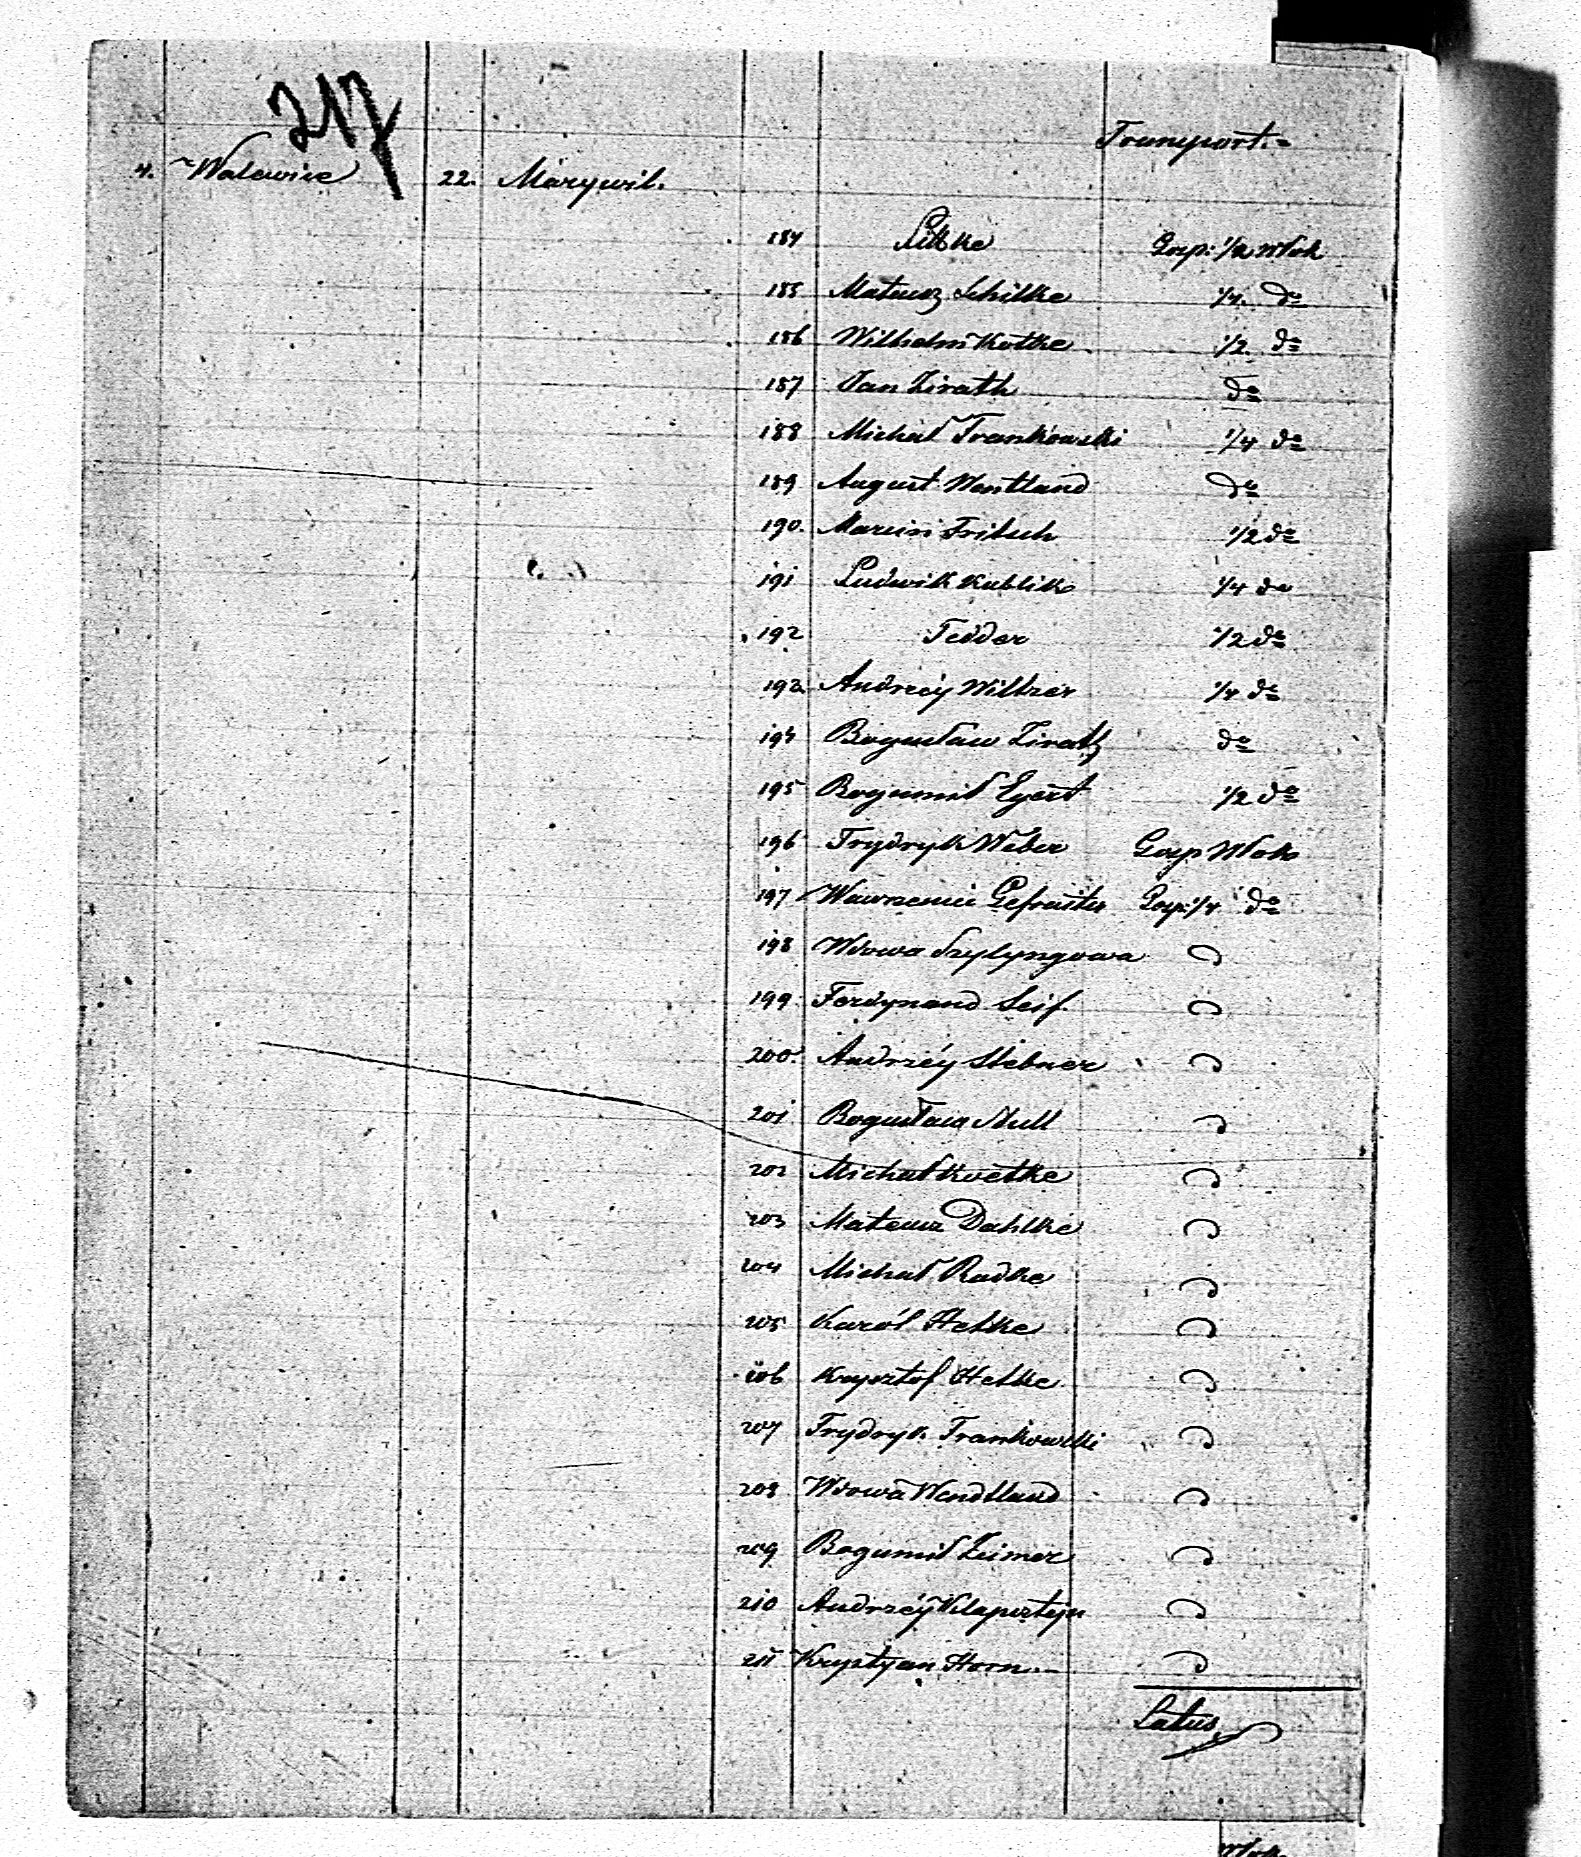 217
Transport.
4. Walewice 22. Marywil.
184 Litke Gosp: 1/2 Włok
185 Mateusz Schilke 1/4. do
186 Wilhelm Kotke 1/2 do
187 Jan Zirath do
188 Michał Frankowski 1/4 do
189 August Wentland do
190. Marcin Fritsch 1/2 do
191 Ludwik Kublik 1/4 do
192 Fedder 1/2 do
193 Andrzéy Wiltzer 1/4 do
194 Bogusław Zirath do
195 Bogumił Egert 1/2 do
196 Frydryk Weber Gosp Włok
197 Wawrzeniec Gefreiter Gosp: 1/4 do
198 Wdowa Szylyngowa
199. Ferdynand Seif.
200. Andrzéy Stebner
201 Bogusław Stull
202 Michał Koetke
203 Mateusz Dahlke
204 Michał Radke
205 Karól Hetke
206 Krysztof Hetke
207 Frydryk Frankowski
208 Wdowa Wendtland
209 Bogumił Zeimer
210 Andrzéy Klapsztejn
211 Krystyan Horn
Latus